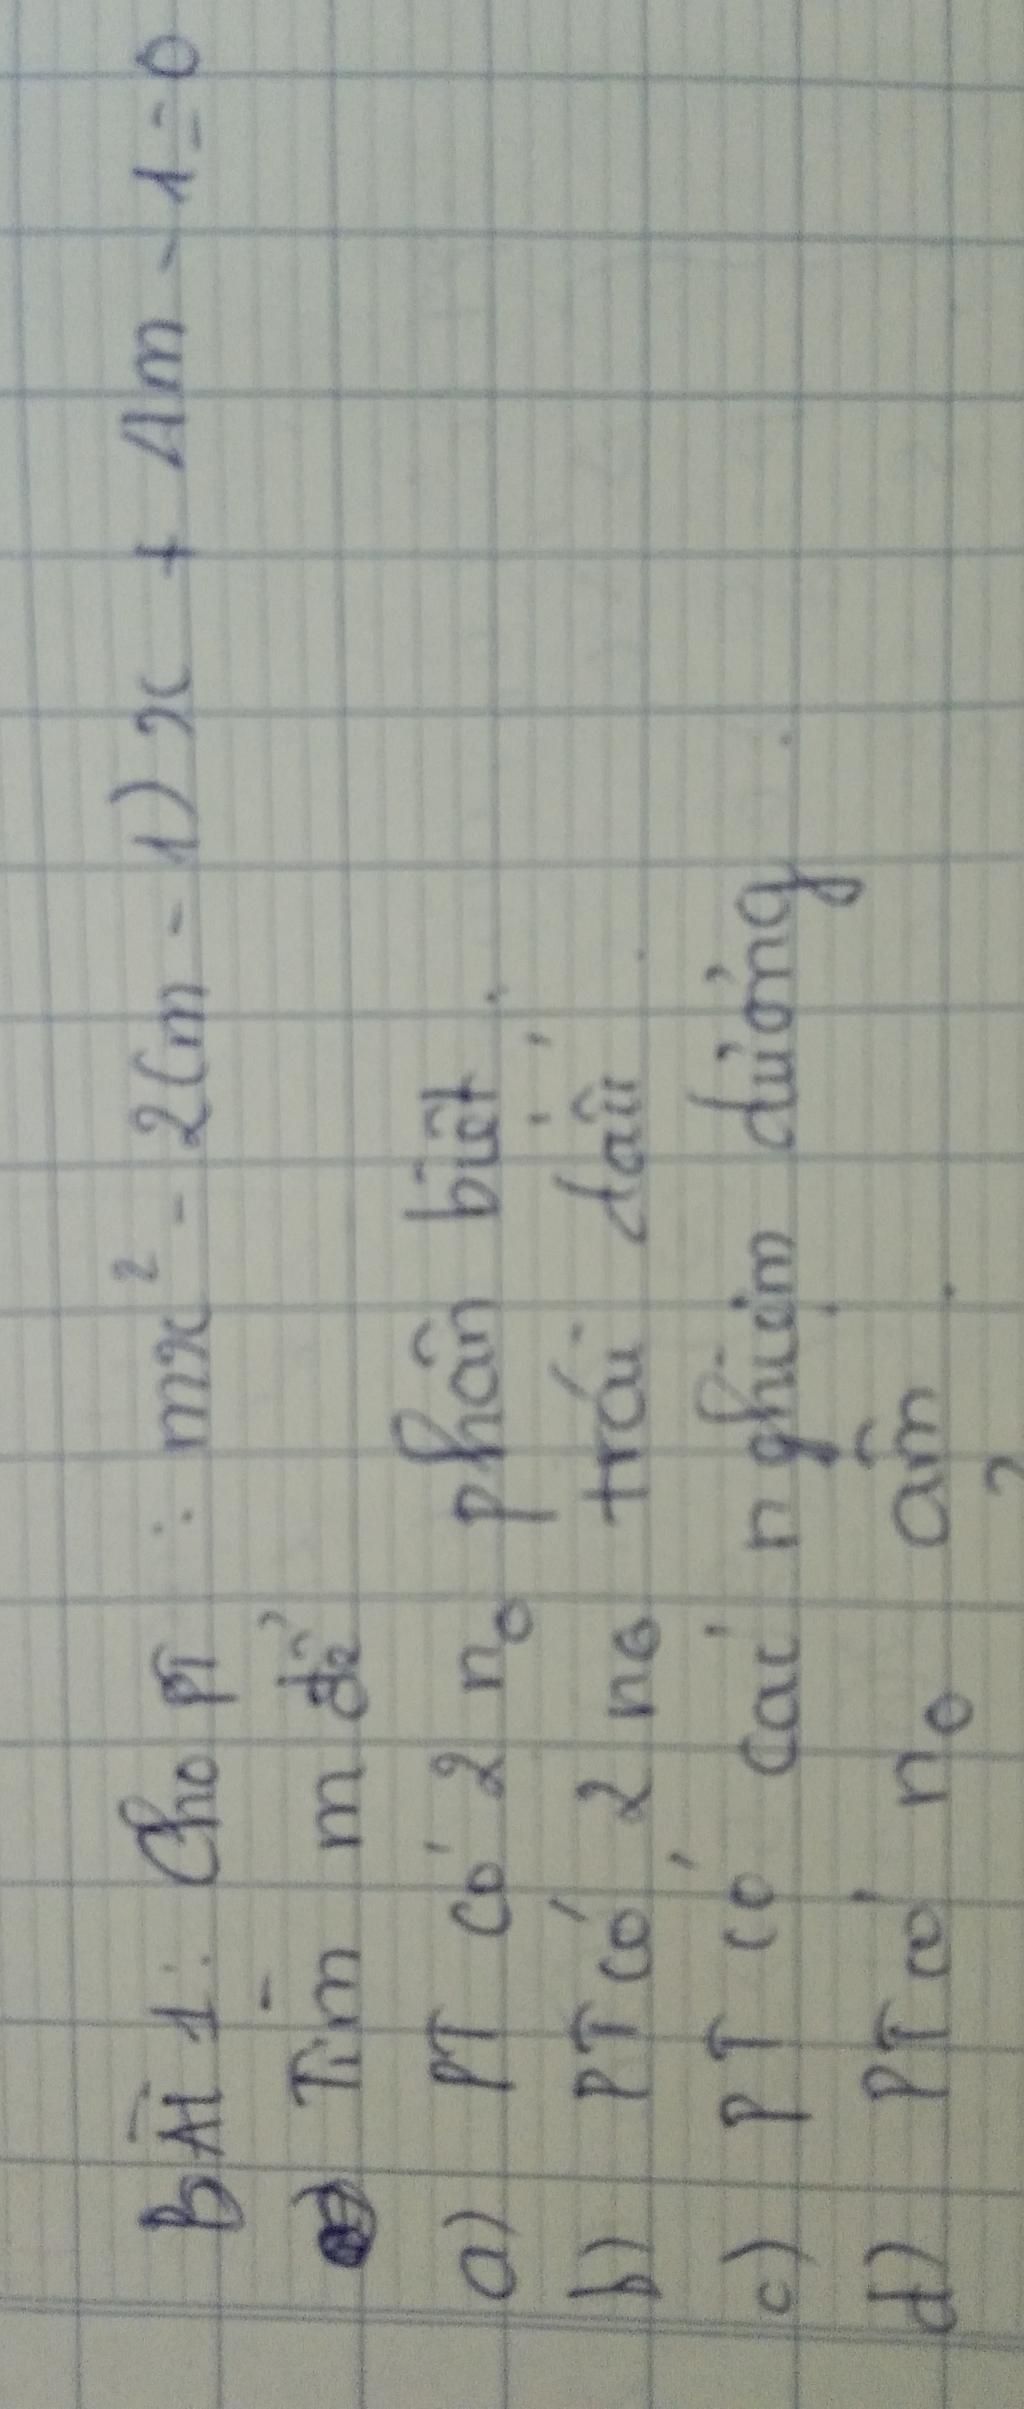 BÀI 1: Cho PT : mx² - 2(m - 1)x + 4m - 1 = 0
Tìm m để
a) PT có 2 n₀ phân biệt.
b) PT có 2 n₀ trái dấu.
c) PT có các nghiệm dương.
d) PT có n₀ âm.